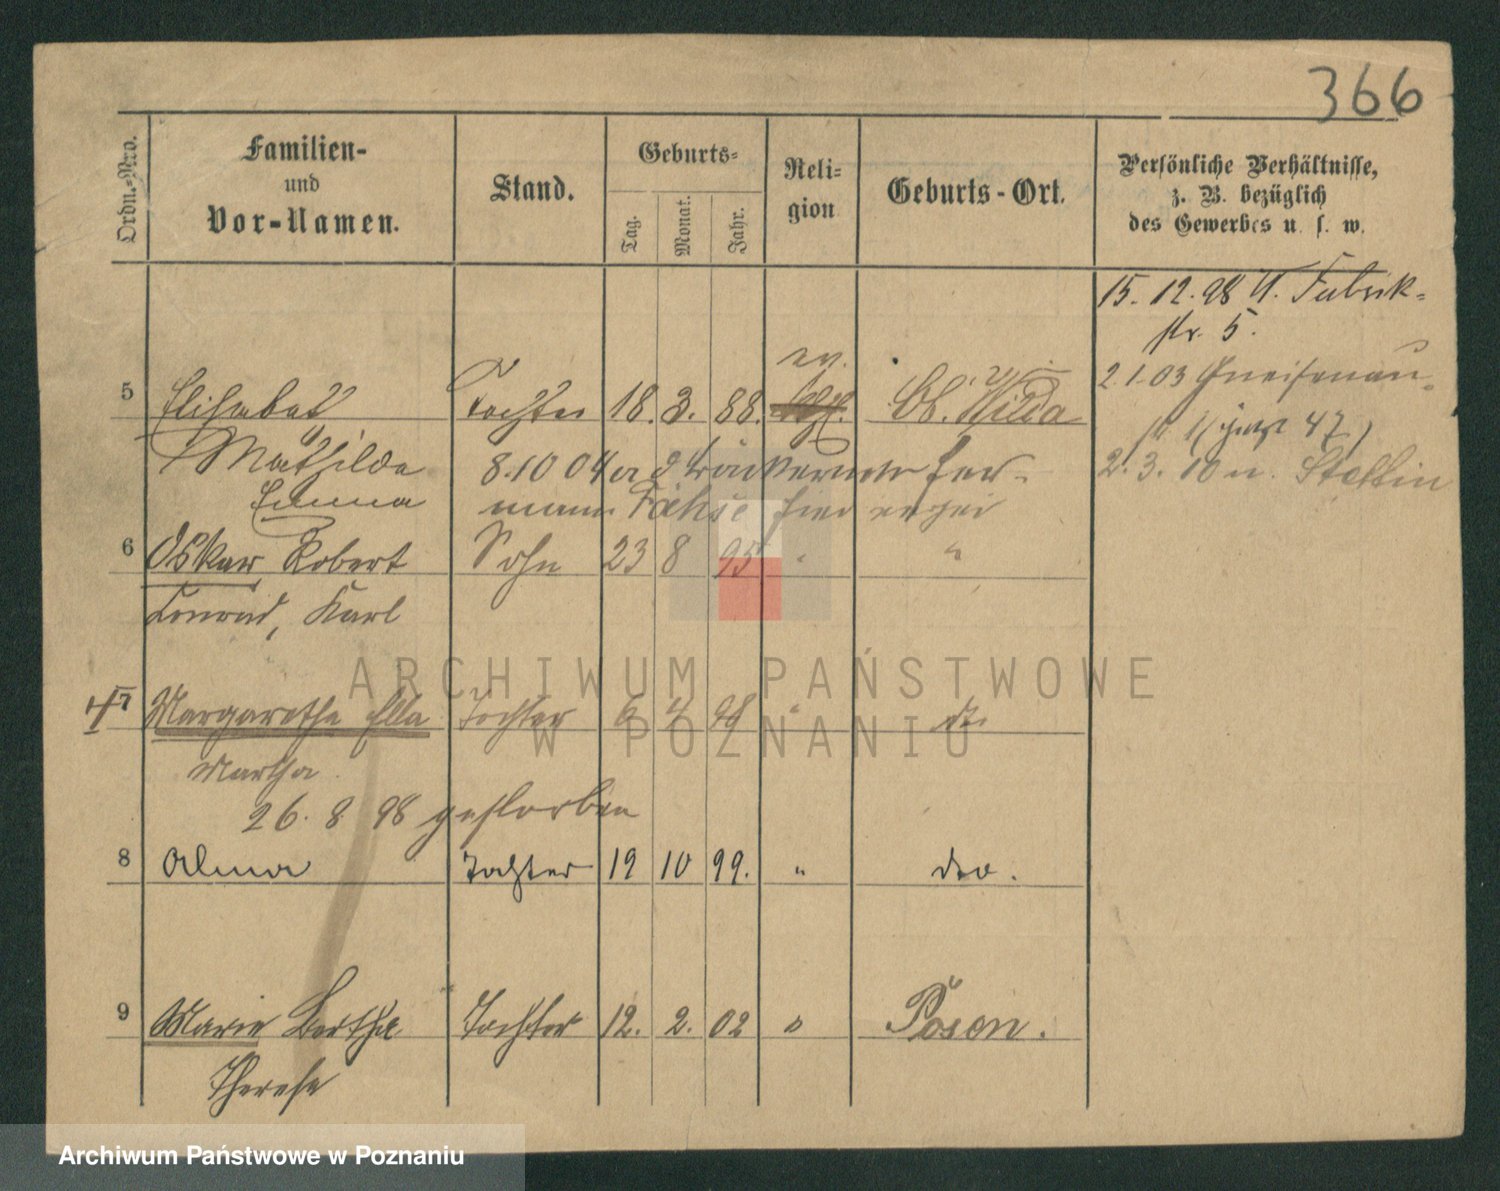 366
Ordn.-Nro.
Familien-
und
Vor-Namen.
Stand.
Geburts-
Tag.
Monat.
Jahr.
Reli-
gion
Geburts-Ort.
Persönliche Verhältnisse,
z. B. bezüglich
des Gewerbes u. s. w.
15. 12. 98 U. Fabrik-
str. 5.
ev.
5 Elisabet Tochter 18. 3. 88. Ob. Wilda
2.1.03 Gneisenau-
str. 1 (jetzt 47)
Mathilde 8.10 04 Her-
2. 3. 10 n. Stettin
Emma mann Fähse
6 Oskar Robert Sohn 23 8 95 " "
Konrad, Karl
7 Margarethe Ella Tochter 6 4 98 " do
Martha
26. 8. 98 gestorben
8 Alma Tochter 19 10 99. " dto.
9 Marie Bertha Tochter 12. 2. 02 " Posen.
Therese
ARCHIWUM PAŃSTWOWE
W POZNANIU
Archiwum Państwowe w Poznaniu